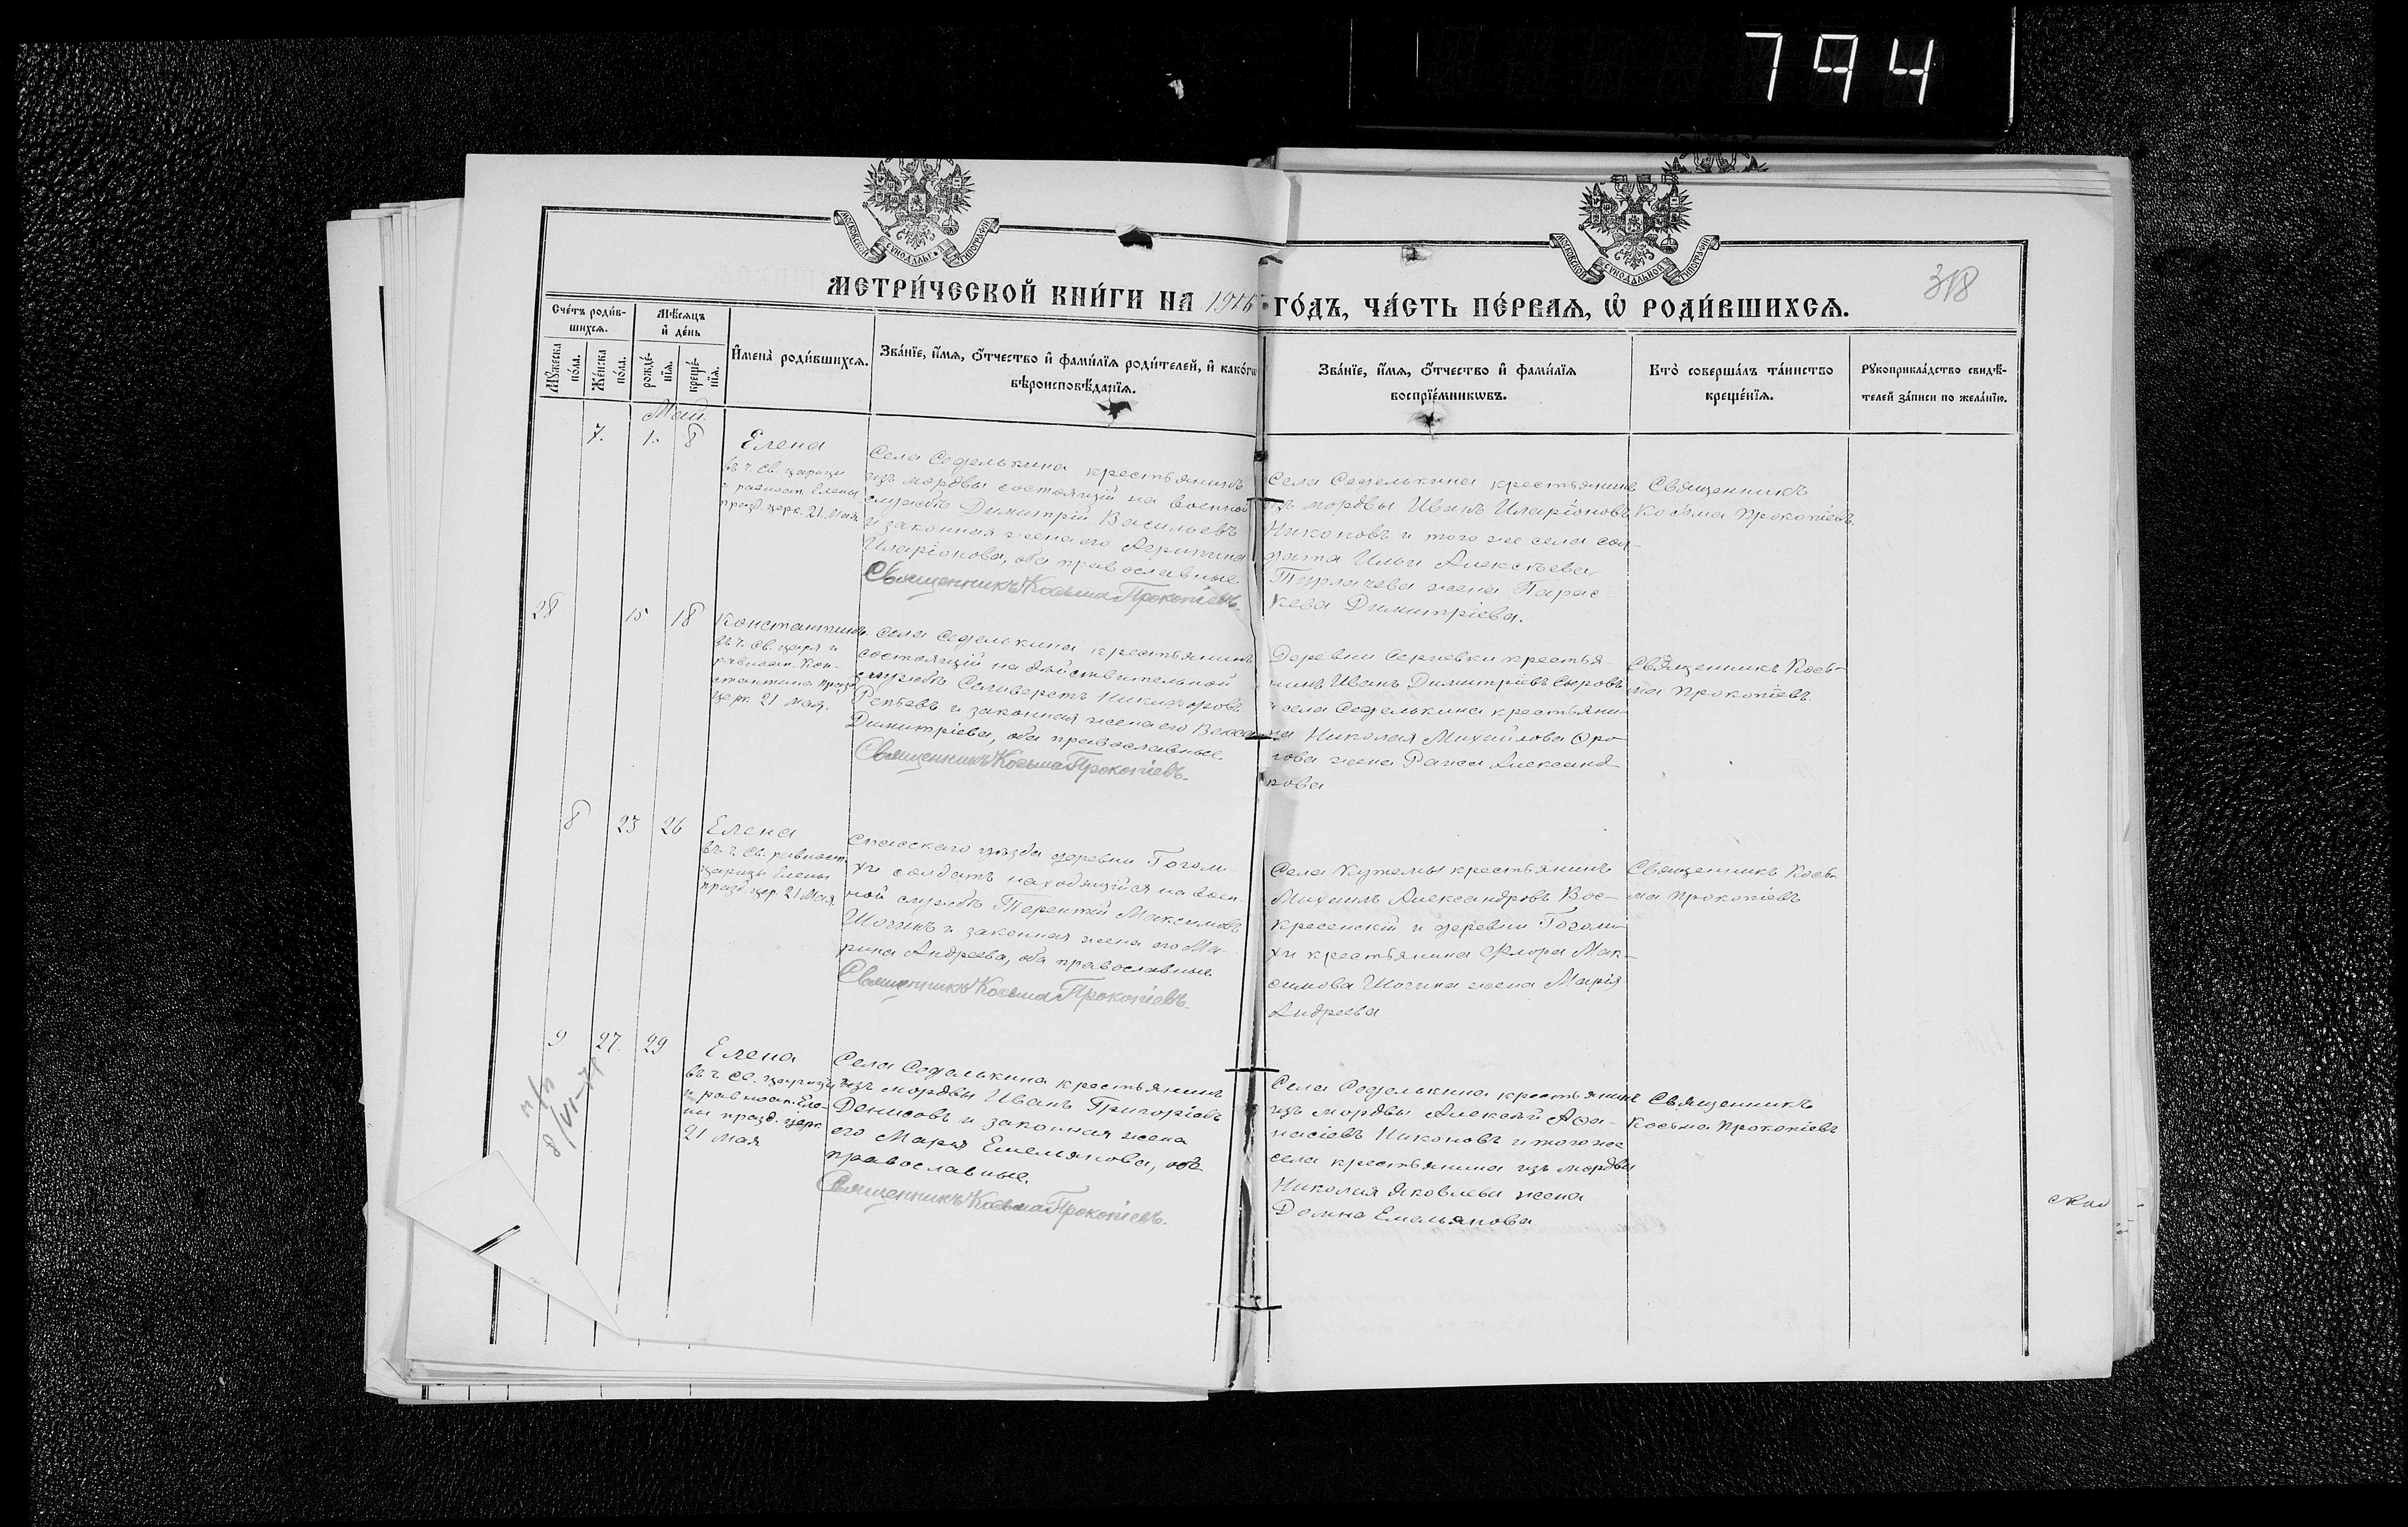 794
МОСКОВСКОЙ СУНОДАЛЬН. ТИПОГРАФІИ
МОСКОВСКОЙ СУНОДАЛЬНОЙ ТИПОГРАФІИ
318
МЕТРИ́ЧЕСКОЙ КНИ́ГИ НА 1916 ГО́ДЪ, ЧА́СТЬ ПЕ́РВАЯ, Ѽ РОДИ́ВШИХСЯ.
Сче́тъ роди́в-
шихся.
Мѣ́сяцъ
и҆ де́нь
Мꙋ́жеска
по́ла.
Же́нска
по́ла.
рожде́-
нїя.
креще́-
нїя.
И҆мена̀ роди́вшихся.
Зва́нїе, и҆́мя, ѻ҆́тчество и҆ фами́лїя роди́телей, и҆ како́гѡ
вѣроисповѣ́данїя.
Зва́нїе, и҆́мя, ѻ҆́тчество и҆ фами́лїя
воспрїе́мникѡвъ.
Кто̀ соверша́лъ та́инство
креще́нїя.
Рꙋкоприкла́дство свидѣ́-
телей за́писи по жела́нїю.
Май
7. 1. 8
Елена
въ ч. св. царицы
и равноап. Елены
празд. церк. 21 Мая.
Села Седелькина крестьянинъ
изъ мордвы состоящій на военной
службѣ Димитрій Васильевъ
и законная жена его Агрипина
Иларіонова, оба православные
Священникъ Косьма Прокопіевъ.
Села Седелькина крестьянинъ
изъ мордвы Иванъ Иларіоновъ
Никоновъ и того же села сол-
дата Ильи Алексѣева
жена Парас-
кева Димитріева.
Священникъ
Косьма Прокопіевъ.
28 15 18
Константинъ.
въ ч. св. царя и
равноап. Кон-
стантина празд.
церк. 21 мая.
Села Седелькина крестьянинъ
состоящій на дѣйствительной
службѣ Селиверстъ Никифоровъ
Репьевъ и законная жена его Васса
Димитріева, оба православные.
Священникъ Косьма Прокопіевъ.
Деревни Сергевки крестья-
нинъ Иванъ Димитріевъ Сыровъ
и села Седелькина крестьяни-
на Николая Михайлова
жена Раиса Александ-
рова
Священникъ Кось-
ма Прокопіевъ.
8 23 26
Елена
въ ч. св. равноап.
царицы Елены
празд. цер. 21 Мая.
Спасскаго уѣзда деревни Гоголи-
хи солдатъ находящійся на воен-
ной службѣ Терентій Максимовъ
Шогинъ и законная жена его Ма-
рина Андреева, оба православные.
Священникъ Косьма Прокопіевъ.
Села Кутемы крестьянинъ
Михаилъ Александровъ Вос-
кресенскій и деревни Гоголи-
хи крестьянина Флора Мак-
симова Шогина жена Марія
Андреева
Священникъ Кось-
ма Прокопіевъ
9 27. 29
Елена
въ ч. св. царицы
и равноап. Еле-
ны празд. церк.
21 мая
Села Седелькина крестьянинъ
изъ мордвы Иванъ Григоріевъ
Денисовъ и законная жена
его Марья Емельянова, оба
православные.
Священникъ Косьма Прокопіевъ.
Села Седелькина крестьянинъ
изъ мордвы Алексѣй Афа-
насіевъ Никоновъ и того же
села крестьянина изъ мордвы
Николая Яковлева жена
Домна Емельянова
Священникъ
Косьма Прокопіевъ